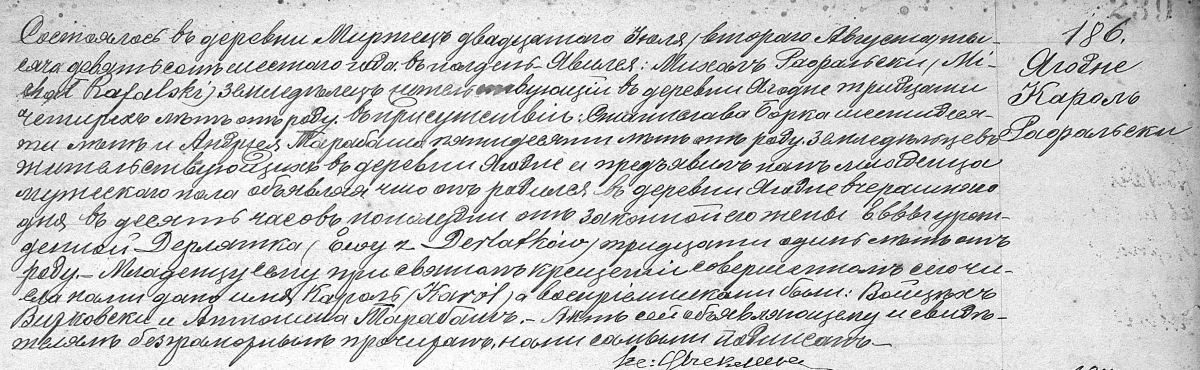 239
186.
Ягодне
Кароль
Рафальски
Состоялось въ деревни Миртецъ двадцатого Іюля (второго Августа) ты-
сяча девятьсотъ шестого года въ полдень. Явился: Михалъ Рафальски (Mi-
chał Rafalski) земледѣлецъ жительствующій въ деревни Ягодне тридцати
четырехъ лѣтъ отъ роду, въ присутствіи: Станислава Горка шестидеся-
ти лѣтъ и Андрея Тарабаша пятидесяти лѣтъ отъ роду, земледѣльцевъ
жительствующихъ въ деревни Ягодне и предъявилъ намъ младенца
мужескаго пола объявляя что онъ родился въ деревни Ягодне вчерашняго
дня въ десять часовъ пополудни отъ законной его жены Еввы урож-
денной Дерлятка (Ewy z Derlatków) тридцати одинъ лѣтъ отъ
роду. – Младенцу сему при святомъ крещеніи совершенномъ сего чи-
сла нами дано имя Кароль (Karól) а воспріемниками были: Войцѣхъ
и Антонина Тарабашъ. – Актъ сей объявляющему и свидѣ-
телямъ безграмотнымъ прочитанъ, нами самыми подписанъ –
Кс: